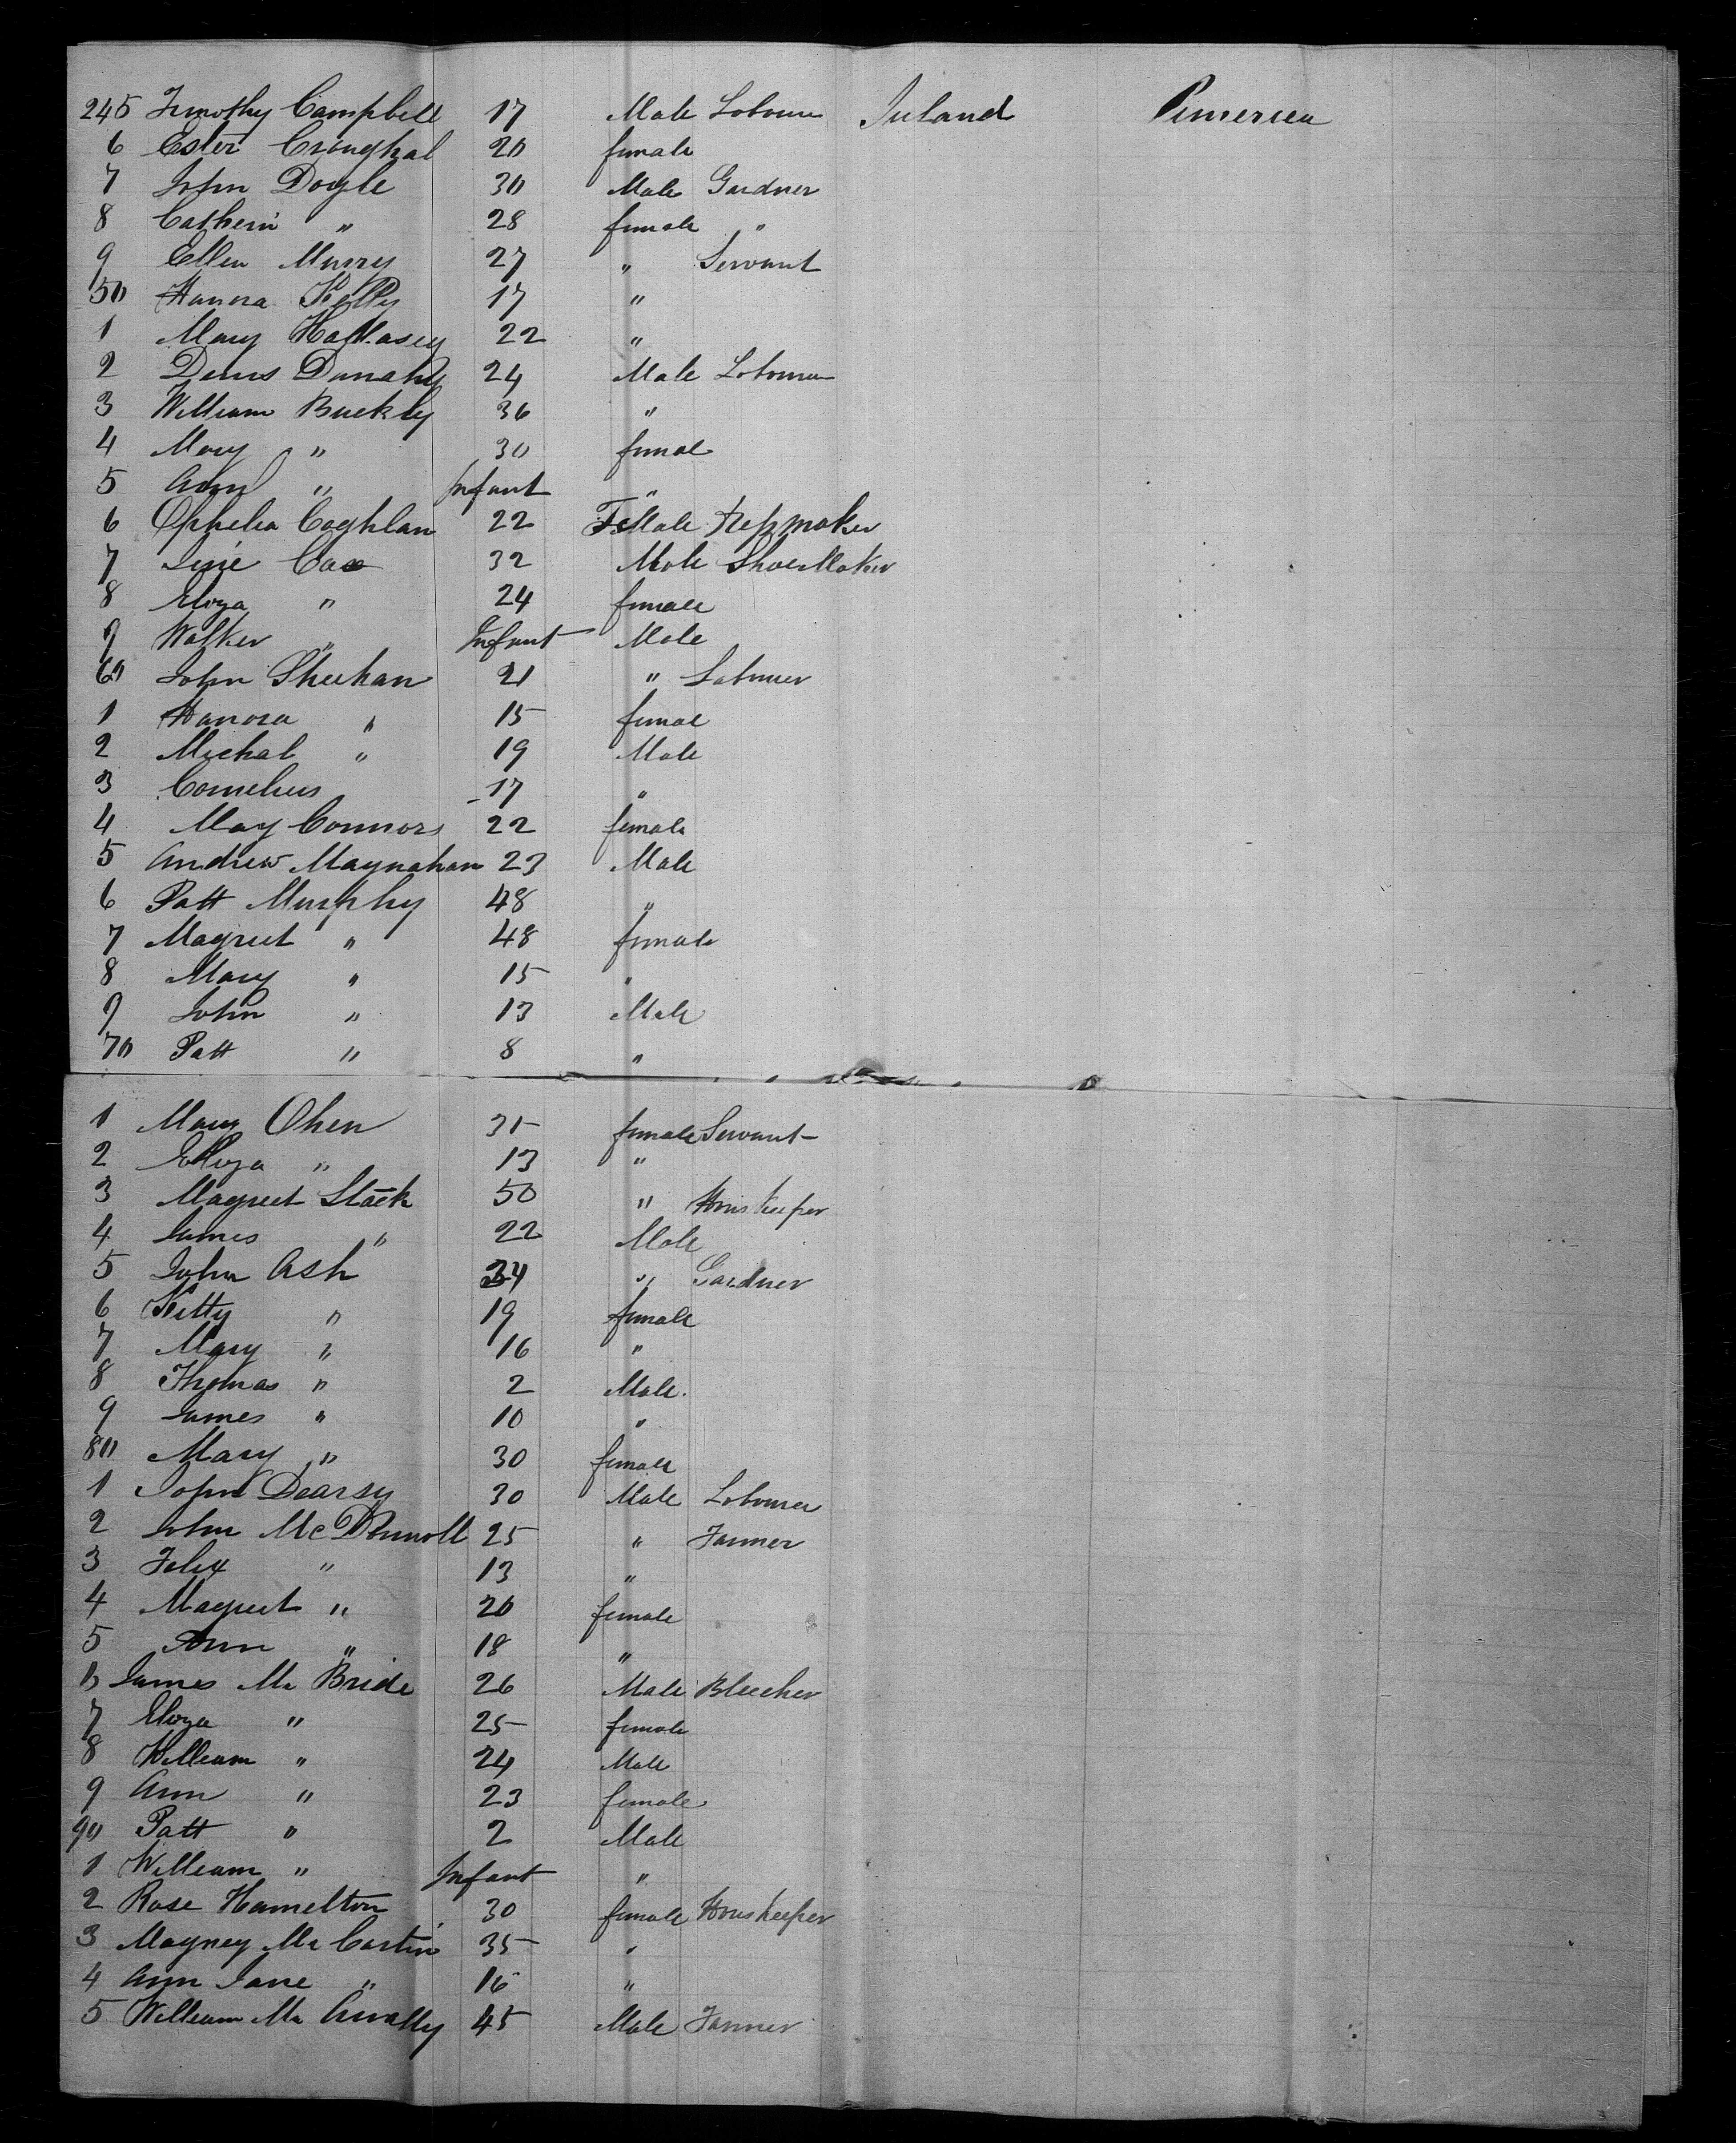 245 Timothy Campbell 17 Male Labourer Ireland America
6 Ester Croughal 20 female
7 John Doyle 30 Male Gardner
8 Catherin " 28 female "
9 Ellen Murry 27 " Servant
50 Hanora Kelly 17 "
1 Mary Hallasey 22 "
2 Denis Danahy 24 Male Labourer
3 William Buckly 36 "
4 Mary " 30 female
5 Ann " Infant "
6 Ophelia Coghlan 22 FeMale
7 Cox 32 Male ShoeMaker
8 Eliza " 24 female
9 Walker " Infant Male
60 John Sheehan 21 " Labourer
1 Hanora " 15 female
2 Michal " 19 Male
3 Cornelius 17 "
4 May Connors 22 female
5 Andrew Maynahan 23 Male
6 Patt Murphy 48 "
7 Magreet " 48 female
8 Mary " 15 "
9 John " 13 Male
70 Patt " 8 "
1 Mary Ohen 35 female Servant
2 Eliza " 13 "
3 Magreet Stack 50 " Hous Keeper
4 James " 22 Male
5 John Ash 34 " Gardner
6 Kitty " 19 female
7 Mary " 16 "
8 Thomas " 2 Male
9 James " 10 "
80 Mary " 30 female
1 John Dearsy 30 Male Labourer
2 John McDonnoll 25 " Farmer
3 Felix " 13 "
4 Magreet " 20 female
5 Ann " 18 "
6 James Mc Bride 26 Male Bleecher
7 Eliza " 25 female
8 William " 24 Male
9 Ann " 23 female
90 Patt " 2 Male
1 William " Infant "
2 Rose Hamelton 30 female Hous Keeper
3 Mayney Mc Cartin 35 "
4 Ann Jane " 16 "
5 William Mc Anally 45 Male Farmer